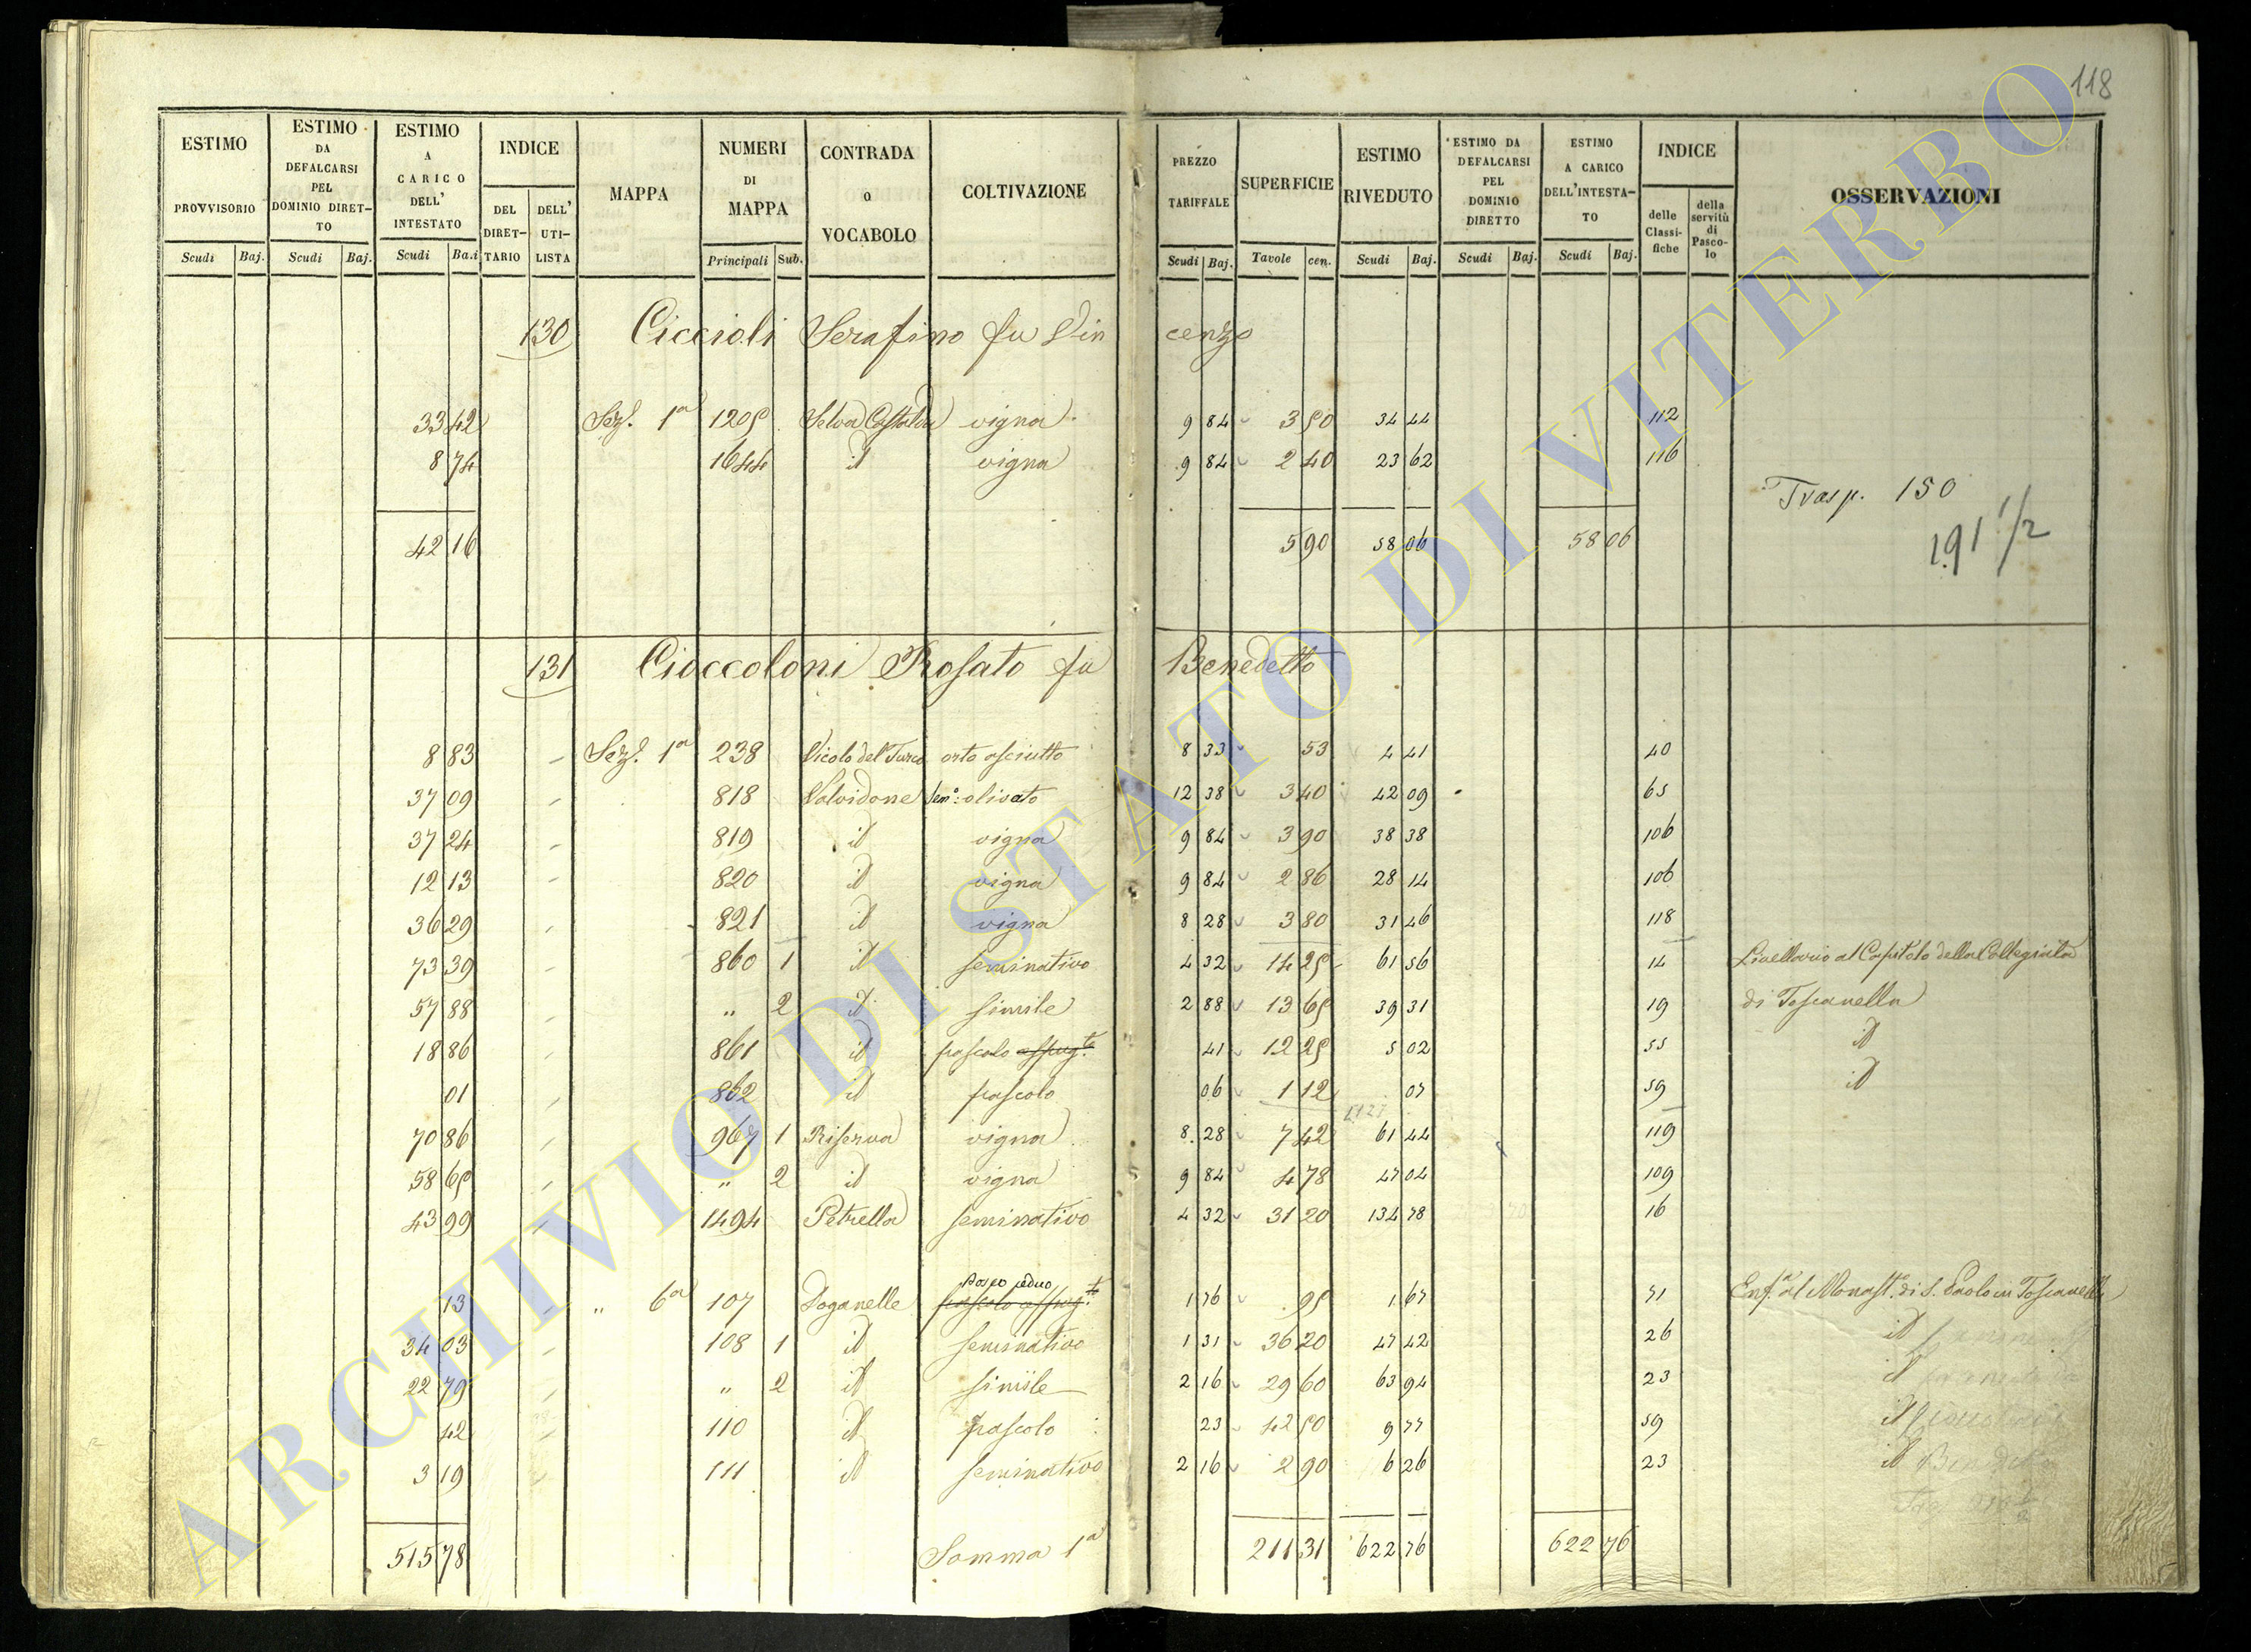 118
ESTIMO PROVVISORIO Scudi Baj.
ESTIMO DA DEFALCARSI PEL DOMINIO DIRET-TO Scudi Baj.
ESTIMO A CARICO DELL' INTESTATO Scudi Ba.i
INDICE DEL DIRET-TARIO DELL' UTI-LISTA
MAPPA
NUMERI DI MAPPA Principali Sub.
CONTRADA O VOCABOLO
COLTIVAZIONE
PREZZO TARIFFALE Scudi Baj.
SUPERFICIE Tavole cen.
ESTIMO RIVEDUTO Scudi Baj.
ESTIMO DA DEFALCARSI PEL DOMINIO DIRETTO Scudi Baj.
ESTIMO A CARICO DELL'INTESTA-TO Scudi Baj.
INDICE delle Classi-fiche della servitù di Pasco-lo
OSSERVAZIONI
130 Ciccioli Serafino fu Vincenzo
33 42 Sez. 1a 1205 Selva Castalda vigna 9 84 3 50 34 44 112
8 74 1644 id vigna 9 84 2 40 23 62 116
Trasp. 150
191 1/2
42 16 5 90 58 06 58 06
131 Cioccoloni Rosato fu Benedetto
8 83 Sez. 1a 238 Vicolo del Turco orto asciutto 8 33 53 4 41 40
37 09 818 Valvidone Sem.o olivato 12 38 3 40 42 09 65
37 24 819 id vigna 9 84 3 90 38 38 106
12 13 820 id vigna 9 84 2 86 28 14 106
36 29 821 id vigna 8 28 3 80 31 46 118
73 39 860 1 id seminativo 4 32 14 25 61 56 14 Livellario al Capitolo della Collegiata
57 88 " 2 id simile 2 88 13 65 39 31 19 di Toscanella
18 86 861 id pascolo 41 12 25 5 02 55 id
01 862 id pascolo 06 1 12 07 59 id
70 86 967 1 Riserva vigna 8 28 7 42 61 44 119
58 65 " 2 id vigna 9 84 4 78 47 04 109
43 99 1494 Petrella seminativo 4 32 31 20 134 78 16
13 " 6a 107 Doganelle bosco ceduo 1 76 95 1 67 51 Enf.a al Monast. di S. Paolo in Toscanella
34 03 108 1 id seminativo 1 31 36 20 47 42 26 id
22 79 " 2 id simile 2 16 29 60 63 94 23 id
42 110 id pascolo 23 42 50 9 77 59 id
3 19 111 id seminativo 2 16 2 90 6 26 23 id
515 78 Somma 1a 211 31 622 76 622 76
ARCHIVIO DI STATO DI VITERBO